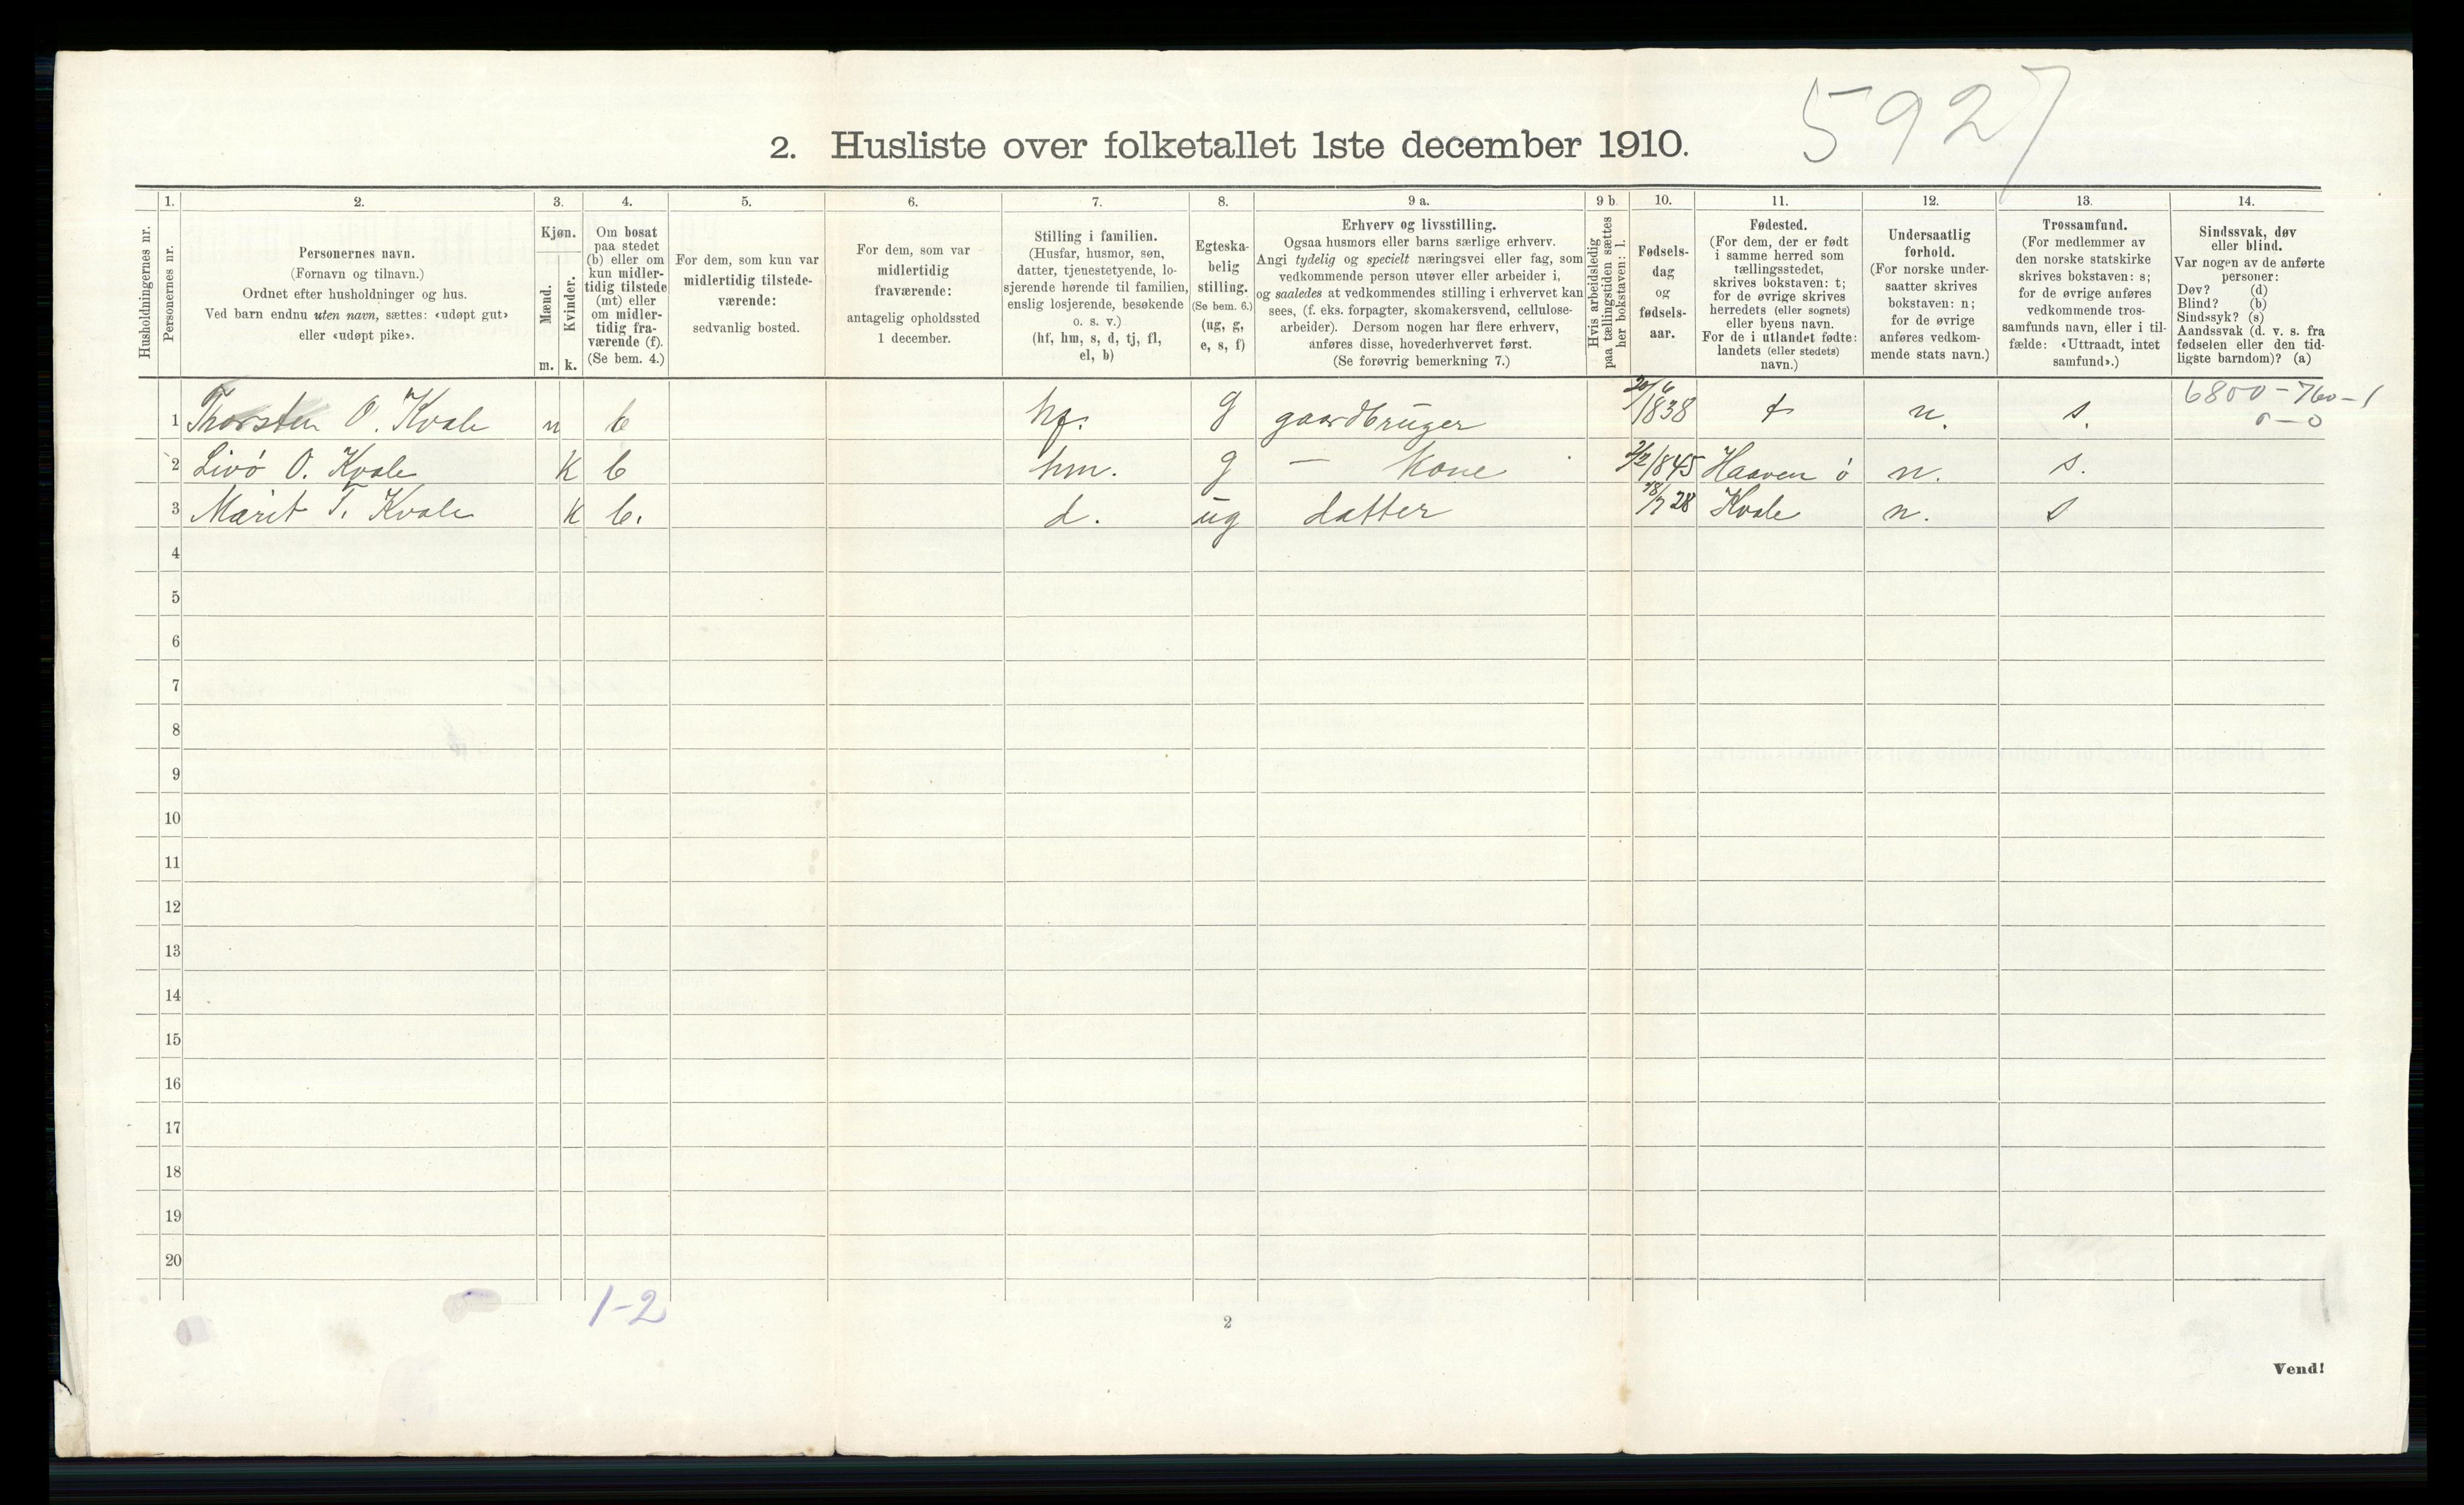 5927
2. Husliste over folketallet 1ste december 1910.
1. 2. 3. 4. 5. 6. 7. 8. 9 a. 9 b. 10. 11. 12. 13. 14.
Husholdningernes nr.
Personernes nr.
Personernes navn.
(Fornavn og tilnavn.)
Ordnet efter husholdninger og hus.
Ved barn endnu uten navn, sættes: «udøpt gut»
eller «udøpt pike».
Kjøn.
Mænd.
Kvinder.
m. k.
Om bosat
paa stedet
(b) eller om
kun midler-
tidig tilstede
(mt) eller
om midler-
tidig fra-
værende (f).
(Se bem. 4.)
For dem, som kun var
midlertidig tilstede-
værende:
sedvanlig bosted.
For dem, som var
midlertidig
fraværende:
antagelig opholdssted
1 december.
Stilling i familien.
(Husfar, husmor, søn,
datter, tjenestetyende, lo-
sjerende hørende til familien,
enslig losjerende, besøkende
o. s. v.)
(hf, hm, s, d, tj, fl,
el, b)
Egteska-
belig
stilling.
(Se bem. 6.)
(ug, g,
e, s, f)
Erhverv og livsstilling.
Ogsaa husmors eller barns særlige erhverv.
Angi tydelig og specielt næringsvei eller fag, som
vedkommende person utøver eller arbeider i,
og saaledes at vedkommendes stilling i erhvervet kan
sees, (f. eks. forpagter, skomakersvend, cellulose-
arbeider). Dersom nogen har flere erhverv,
anføres disse, hovederhvervet først.
(Se forøvrig bemerkning 7.)
Hvis arbeidsledig
paa tællingstiden sættes
her bokstaven: l.
Fødsels-
dag
og
fødsels-
aar.
Fødested.
(For dem, der er født
i samme herred som
tællingsstedet,
skrives bokstaven: t;
for de øvrige skrives
herredets (eller sognets)
eller byens navn.
For de i utlandet fødte:
landets (eller stedets)
navn.)
Undersaatlig
forhold.
(For norske under-
saatter skrives
bokstaven: n;
for de øvrige
anføres vedkom-
mende stats navn.)
Trossamfund.
(For medlemmer av
den norske statskirke
skrives bokstaven: s;
for de øvrige anføres
vedkommende tros-
samfunds navn, eller i til-
fælde: «Uttraadt, intet
samfund».)
Sindssvak, døv
eller blind.
Var nogen av de anførte
personer:
Døv? (d)
Blind? (b)
Sindssyk? (s)
Aandssvak (d. v. s. fra
fødselen eller den tid-
ligste barndom)? (a)
1 Thorsten O. Kvale m b hf. g gaardbruger 20/6 1838 t n. s. 6800-760-1
0-0
2 Livø O. Kvale k b hm. g — Kone 2/2 1845 Haaven ø n. s.
3 Marit T. Kvale k b. d. ug datter 18/7 28 Kvale n. s
4
5
6
7
8
9
10
11
12
13
14
15
16
17
18
19
20
1-2
2
Vend!